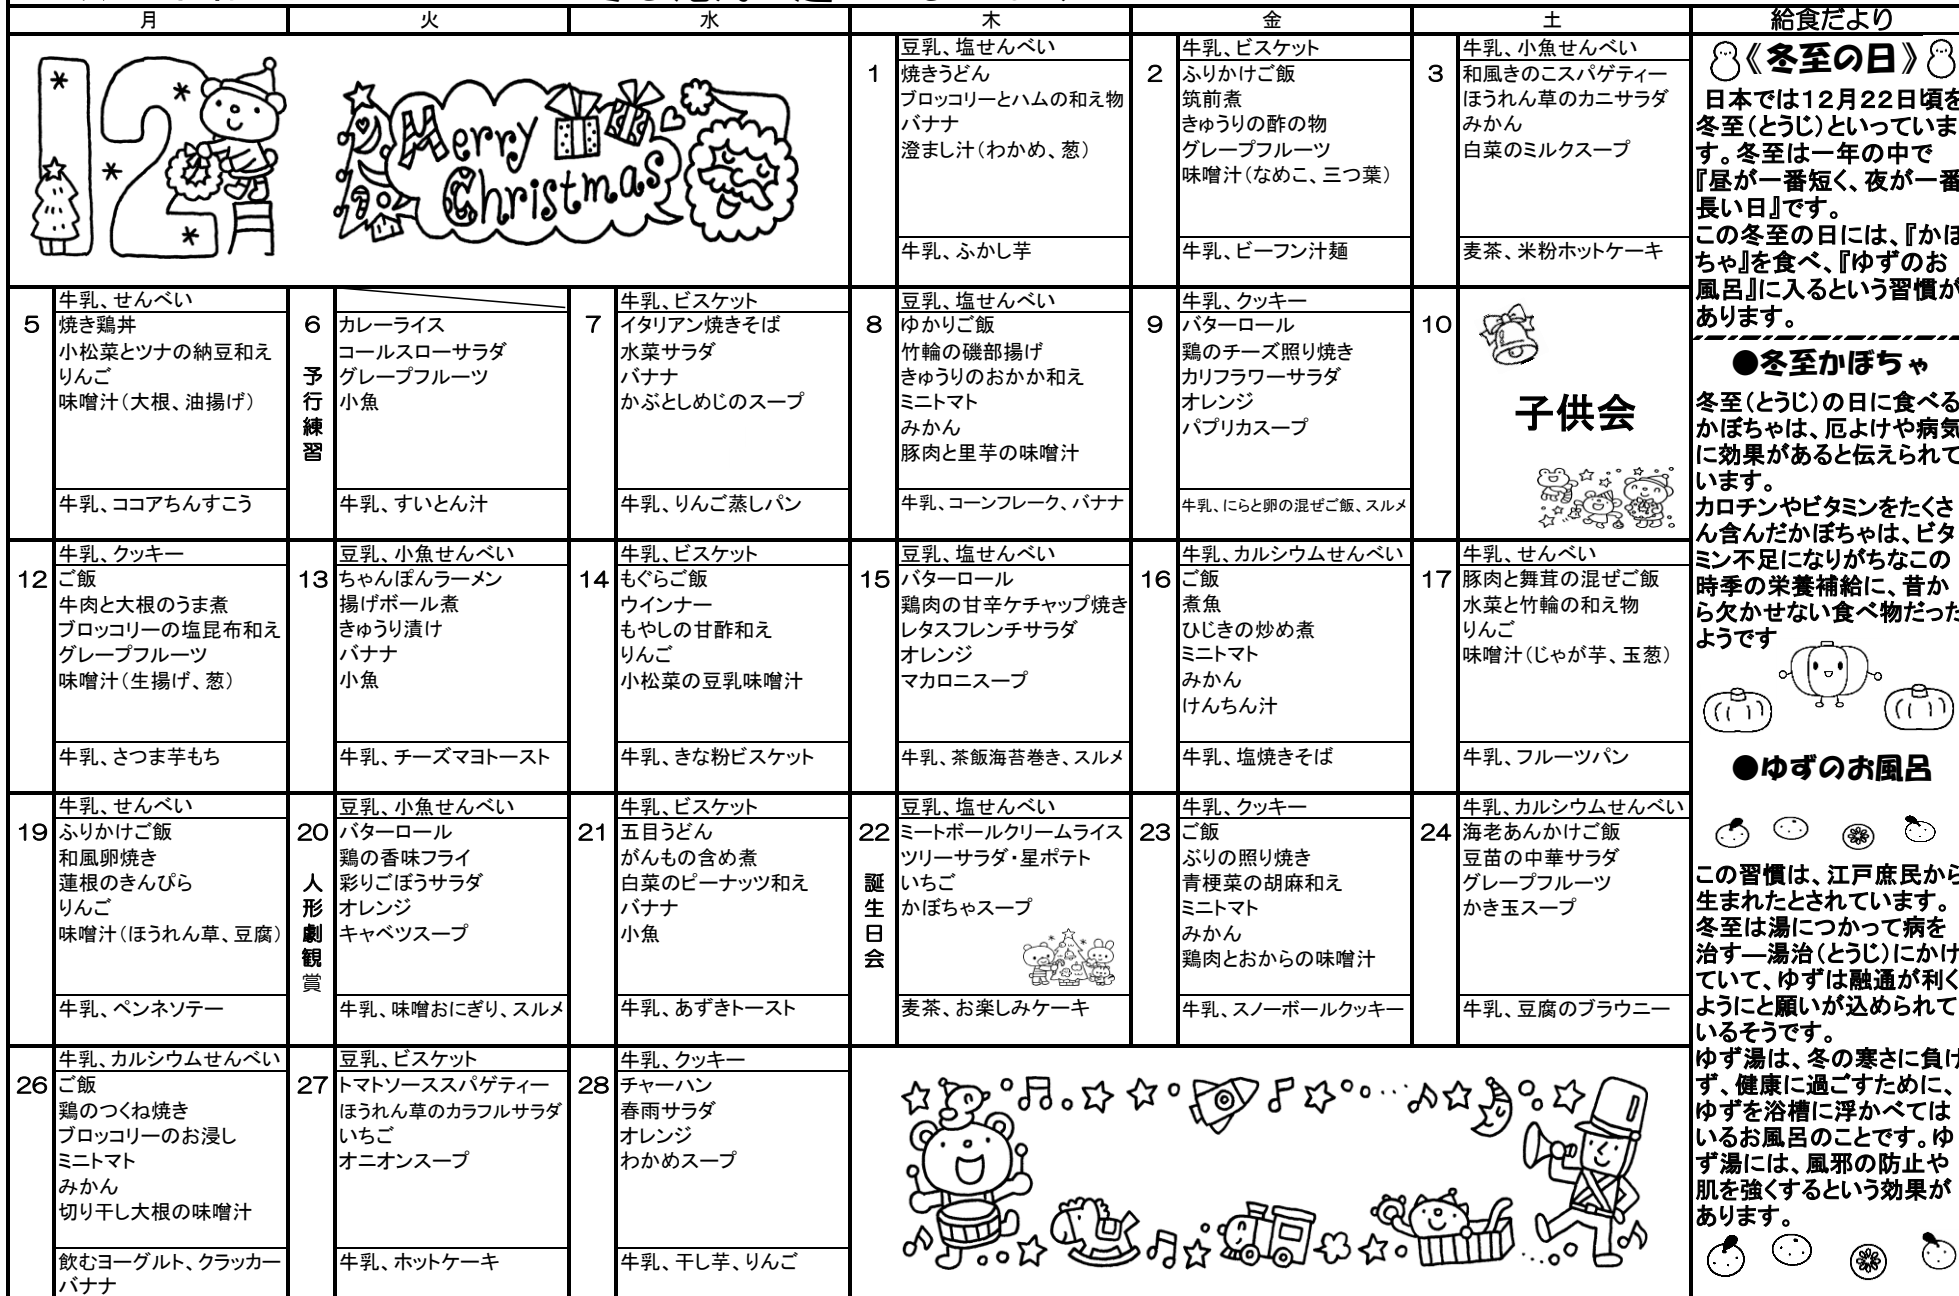 月 火 水 木 金 土 給食だより
12月
Merry
Christmas
1
豆乳、塩せんべい
焼きうどん
ブロッコリーとハムの和え物
バナナ
澄まし汁（わかめ、葱）
牛乳、ふかし芋
2
牛乳、ビスケット
ふりかけご飯
筑前煮
きゅうりの酢の物
グレープフルーツ
味噌汁（なめこ、三つ葉）
牛乳、ビーフン汁麺
3
牛乳、小魚せんべい
和風きのこスパゲティー
ほうれん草のカニサラダ
みかん
白菜のミルクスープ
麦茶、米粉ホットケーキ
5
牛乳、せんべい
焼き鶏丼
小松菜とツナの納豆和え
りんご
味噌汁（大根、油揚げ）
牛乳、ココアちんすこう
6
予行練習
カレーライス
コールスローサラダ
グレープフルーツ
小魚
牛乳、すいとん汁
7
牛乳、ビスケット
イタリアン焼きそば
水菜サラダ
バナナ
かぶとしめじのスープ
牛乳、りんご蒸しパン
8
豆乳、塩せんべい
ゆかりご飯
竹輪の磯部揚げ
きゅうりのおかか和え
ミニトマト
みかん
豚肉と里芋の味噌汁
牛乳、コーンフレーク、バナナ
9
牛乳、クッキー
バターロール
鶏のチーズ照り焼き
カリフラワーサラダ
オレンジ
パプリカスープ
牛乳、にらと卵の混ぜご飯、スルメ
10
子供会
12
牛乳、クッキー
ご飯
牛肉と大根のうま煮
ブロッコリーの塩昆布和え
グレープフルーツ
味噌汁（生揚げ、葱）
牛乳、さつま芋もち
13
豆乳、小魚せんべい
ちゃんぽんラーメン
揚げボール煮
きゅうり漬け
バナナ
小魚
牛乳、チーズマヨトースト
14
牛乳、ビスケット
もぐらご飯
ウインナー
もやしの甘酢和え
りんご
小松菜の豆乳味噌汁
牛乳、きな粉ビスケット
15
豆乳、塩せんべい
バターロール
鶏肉の甘辛ケチャップ焼き
レタスフレンチサラダ
オレンジ
マカロニスープ
牛乳、茶飯海苔巻き、スルメ
16
牛乳、カルシウムせんべい
ご飯
煮魚
ひじきの炒め煮
ミニトマト
みかん
けんちん汁
牛乳、塩焼きそば
17
牛乳、せんべい
豚肉と舞茸の混ぜご飯
水菜と竹輪の和え物
りんご
味噌汁（じゃが芋、玉葱）
牛乳、フルーツパン
19
牛乳、せんべい
ふりかけご飯
和風卵焼き
蓮根のきんぴら
りんご
味噌汁（ほうれん草、豆腐）
牛乳、ペンネソテー
20
人形劇観賞
豆乳、小魚せんべい
バターロール
鶏の香味フライ
彩りごぼうサラダ
オレンジ
キャベツスープ
牛乳、味噌おにぎり、スルメ
21
牛乳、ビスケット
五目うどん
がんもの含め煮
白菜のピーナッツ和え
バナナ
小魚
牛乳、あずきトースト
22
誕生日会
豆乳、塩せんべい
ミートボールクリームライス
ツリーサラダ・星ポテト
いちご
かぼちゃスープ
麦茶、お楽しみケーキ
23
牛乳、クッキー
ご飯
ぶりの照り焼き
青梗菜の胡麻和え
ミニトマト
みかん
鶏肉とおからの味噌汁
牛乳、スノーボールクッキー
24
牛乳、カルシウムせんべい
海老あんかけご飯
豆苗の中華サラダ
グレープフルーツ
かき玉スープ
牛乳、豆腐のブラウニー
26
牛乳、カルシウムせんべい
ご飯
鶏のつくね焼き
ブロッコリーのお浸し
ミニトマト
みかん
切り干し大根の味噌汁
飲むヨーグルト、クラッカー
バナナ
27
豆乳、ビスケット
トマトソーススパゲティー
ほうれん草のカラフルサラダ
いちご
オニオンスープ
牛乳、ホットケーキ
28
牛乳、クッキー
チャーハン
春雨サラダ
オレンジ
わかめスープ
牛乳、干し芋、りんご
《冬至の日》
日本では12月22日頃を
冬至（とうじ）といっていま
す。冬至は一年の中で
『昼が一番短く、夜が一番
長い日』です。
この冬至の日には、『かぼ
ちゃ』を食べ、『ゆずのお
風呂』に入るという習慣が
あります。
●冬至かぼちゃ
冬至（とうじ）の日に食べる
かぼちゃは、厄よけや病気
に効果があると伝えられて
います。
カロチンやビタミンをたくさ
ん含んだかぼちゃは、ビタ
ミン不足になりがちなこの
時季の栄養補給に、昔か
ら欠かせない食べ物だった
ようです
●ゆずのお風呂
この習慣は、江戸庶民から
生まれたとされています。
冬至は湯につかって病を
治す―湯治（とうじ）にかけ
ていて、ゆずは融通が利く
ようにと願いが込められて
いるそうです。
ゆず湯は、冬の寒さに負け
ず、健康に過ごすために、
ゆずを浴槽に浮かべては
いるお風呂のことです。ゆ
ず湯には、風邪の防止や
肌を強くするという効果が
あります。